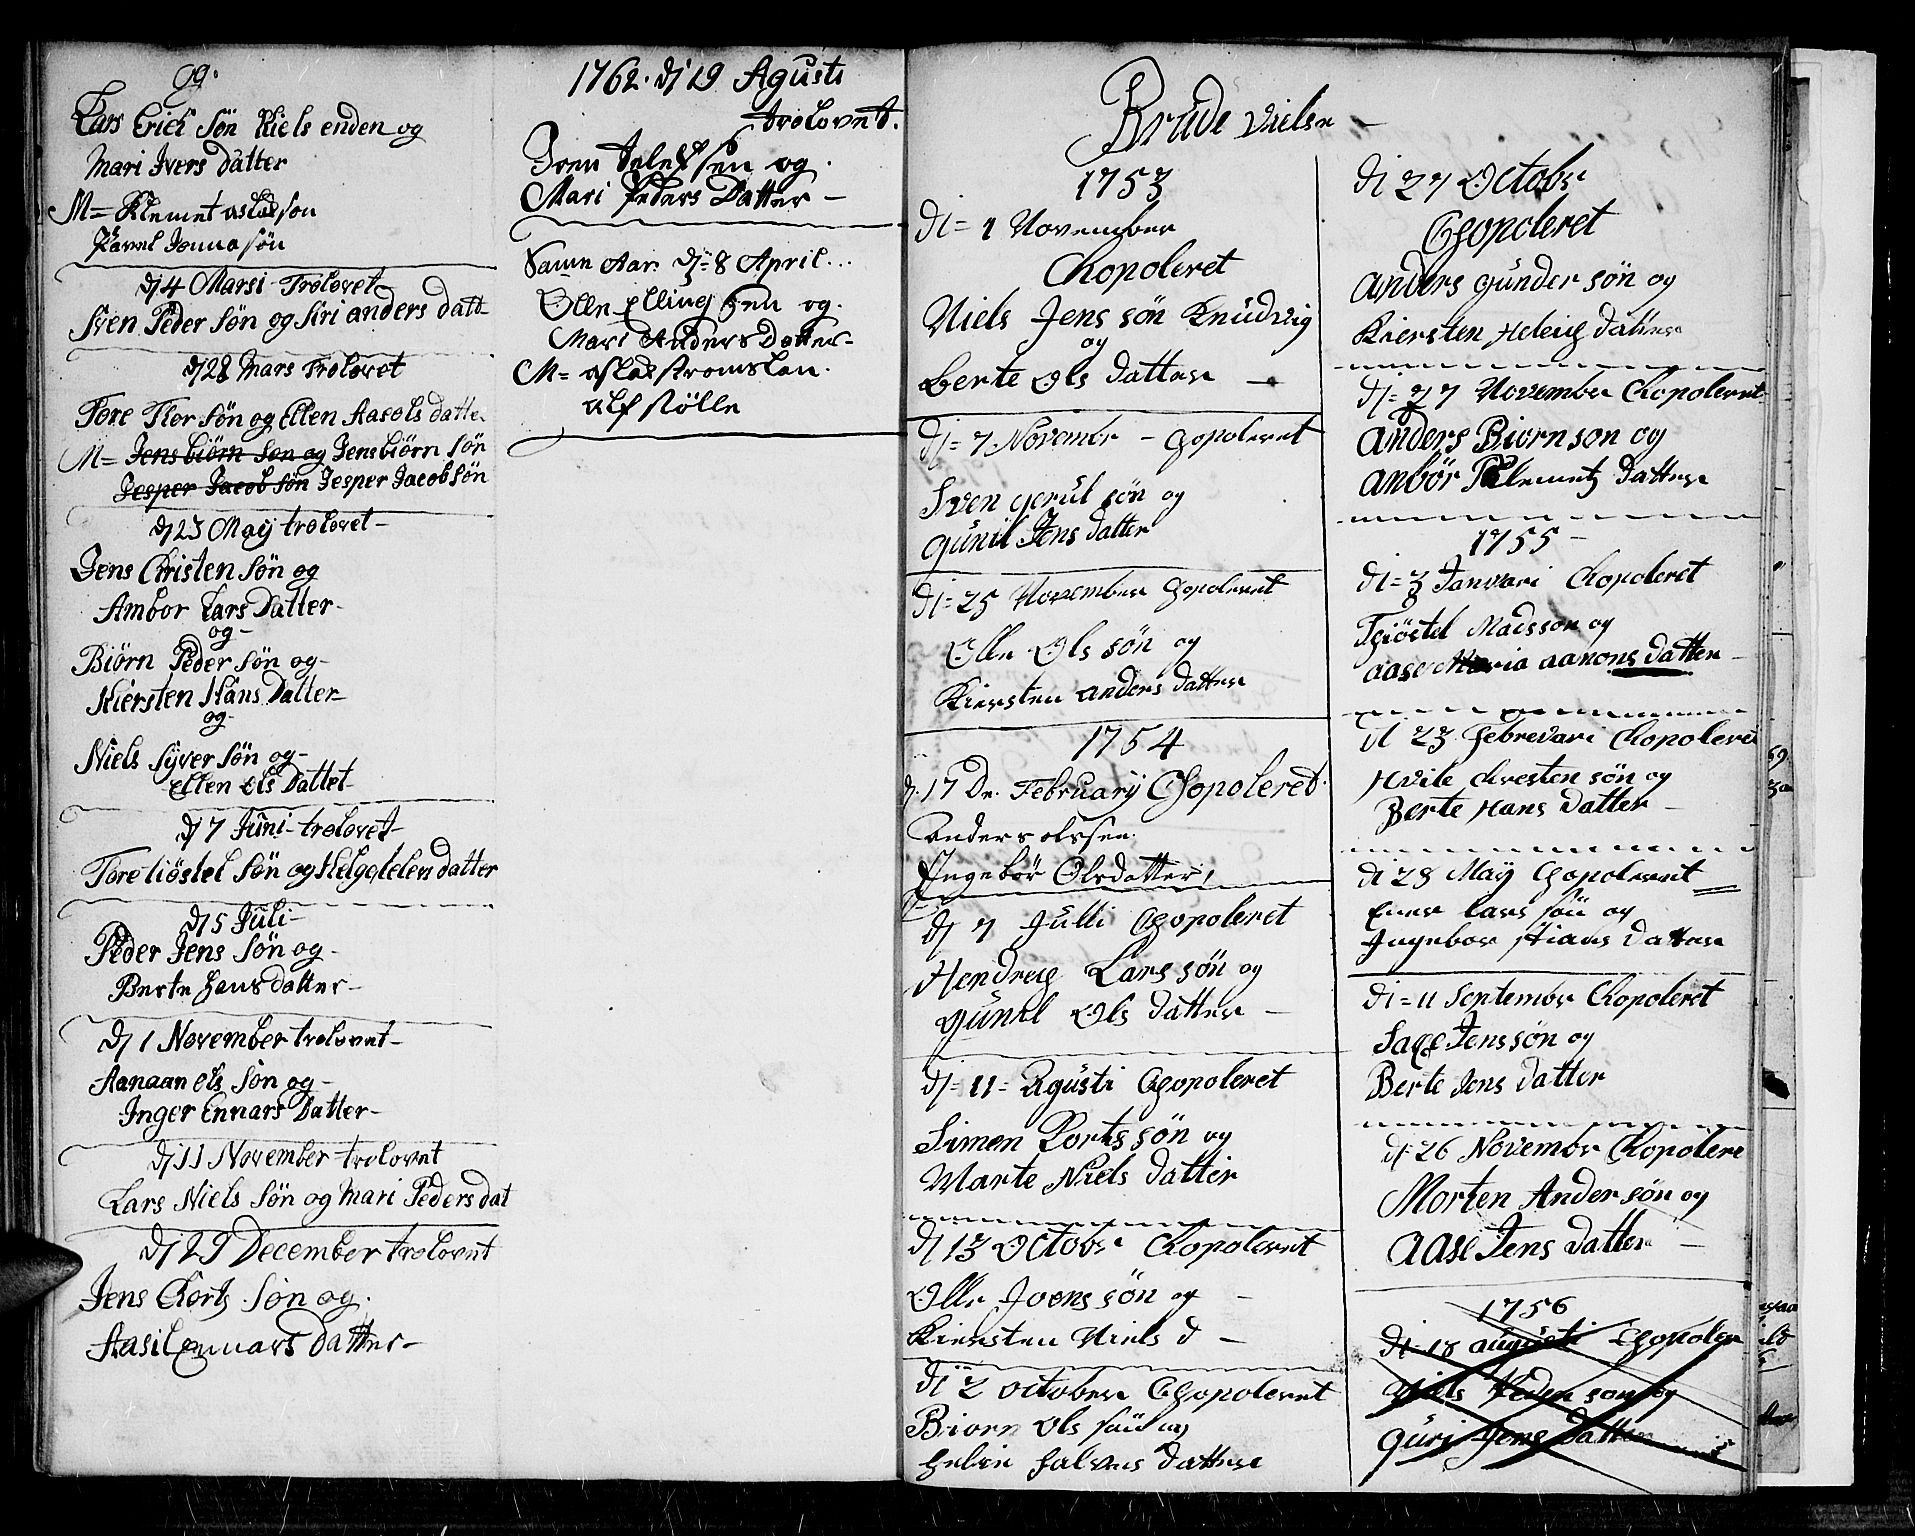 og.
Lars Erich Søn Niels enden og
Mari Ivers dätter
M= Klemet aslaksøn
Pavel Jonnasøn
dj 4 Marsi Trolovet
Sven Peder Søn og Siri anders datt
dj 28 Mars Trolovet
Tore Flor Søn og Ellen Aasols datte
M= Jensbiörn Søn og Jensbiörn Søn
Jesper Jacob Søn Jesper Jacob Søn
dj 23 Maÿ trolovet -
Jens Christen Søn og
Ambor Lars Datter -
og -
Biørn Peder Søn og -
Kiersten Hans Datter -
og -
Niels Syver Søn og -
Ellen Ols Dattet
dj 7 Juni - trolovet -
Tore tiöstel Søn og Helge telen datter
dj 5 Juli -
Peder Jens Søn og -
Berte hans datter -
dj 1 November trolovet -
Aanaan els Søn og -
Inger Ennars Datter -
dj 11 November trolovet
Lars Niels Søn og Mari Peders dat
dj 29 December trolovet
Jens Chorts Søn og.
Aasil Ennars Datter -
1762. dj 19 Agusti
trolovet.
Iven telefsen og.
Mari Peders Datter -
Samn Aar. dj= 8 April...
Olle Elling Sen og.
Mari Anders Datter -
M= aslak stromslan.
Alf stölle
Brude Vielse -
1753
di= 1 November
Chopoleret
Niels Jens søn Knüdvig
og
Berte Ols datter -
dj= 7 November - Chopoleret
Sven gerül søn og
günil Jens datter
dj= 25 November Chopoleret
Olle Ols søn og
Kiersten anders datter
1754
d. 17 Dn. Februarÿ Chopoleret.
Anders olssen.
Ingebör Olsdatter,
dj 7 Julli Chopoleret
Hendreg Lars søn og
günel Ols datter -
dj= 11= Agüsti Chopoleret
Simen Corts søn og
Marte Niels datter
dj 13 Octobr Chopoleret
Olle Joens søn og -
Kiersten Niels d -
di 2 october Chopoleret
Biorn Ols søn og
helie halvers datter
di 27 Octobr
Chopoleret
anders günder søn og
Kiersten Heleig datter
dj= 27 November Chopoleret
anders Biørnson og
anbör Klemetz datter
1755 -
di= 3 Janvari Chopoleret
Tgiöstel Madsson og
aase Maria aanons datter -
di 23 Febrevari Chopoleret
Hvile Chresten søn og
Berte Hans datter -
di 28 Maÿ Chopoleret
Ener lars søn og
Ingebor stians datter
di= 11 September Chopoleret
Sage Jens søn og
Berte Jens datter
dj 26 November Chopolere
Morten Ander søn og
aase Jens datter -
1756
di= 18 augüsti Chopoler
Niels Peder son og
güri Jens datter